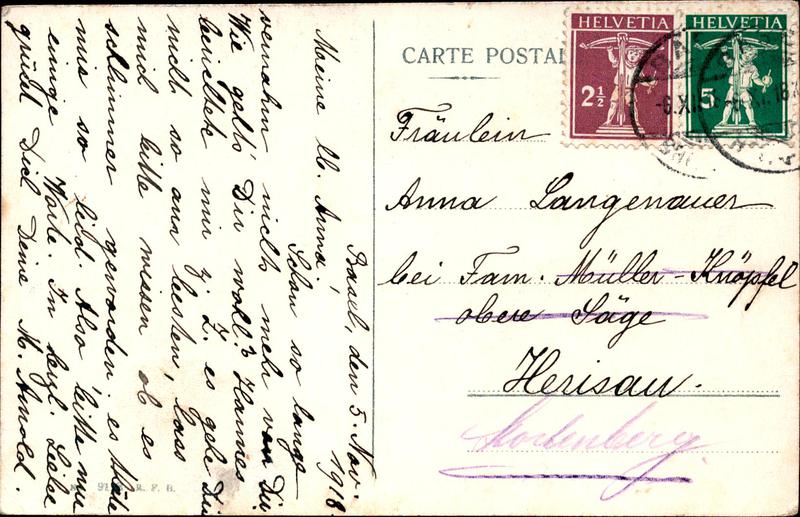 Basel, den 5. Nov.
1918
Meine lb. Anna!
Schon so lange
vernahm nichts mehr von Dir
Wie geht's Dir wohl? Hannes
berichtete mir z. Z. es gehe Dir
nicht so am besten, lass
mich bitte wissen ob es
schlimmer geworden. es täte
mir so leid. Also bitte nur
einige Worte. In herzl. Liebe
grüsst Dich Deine M. Arnold.
R. F. B.
CARTE POSTAL
HELVETIA
2½
HELVETIA
5
Fräulein
Anna Langenauer
bei Fam. Müller-Knöpfel
obere Säge
Herisau.